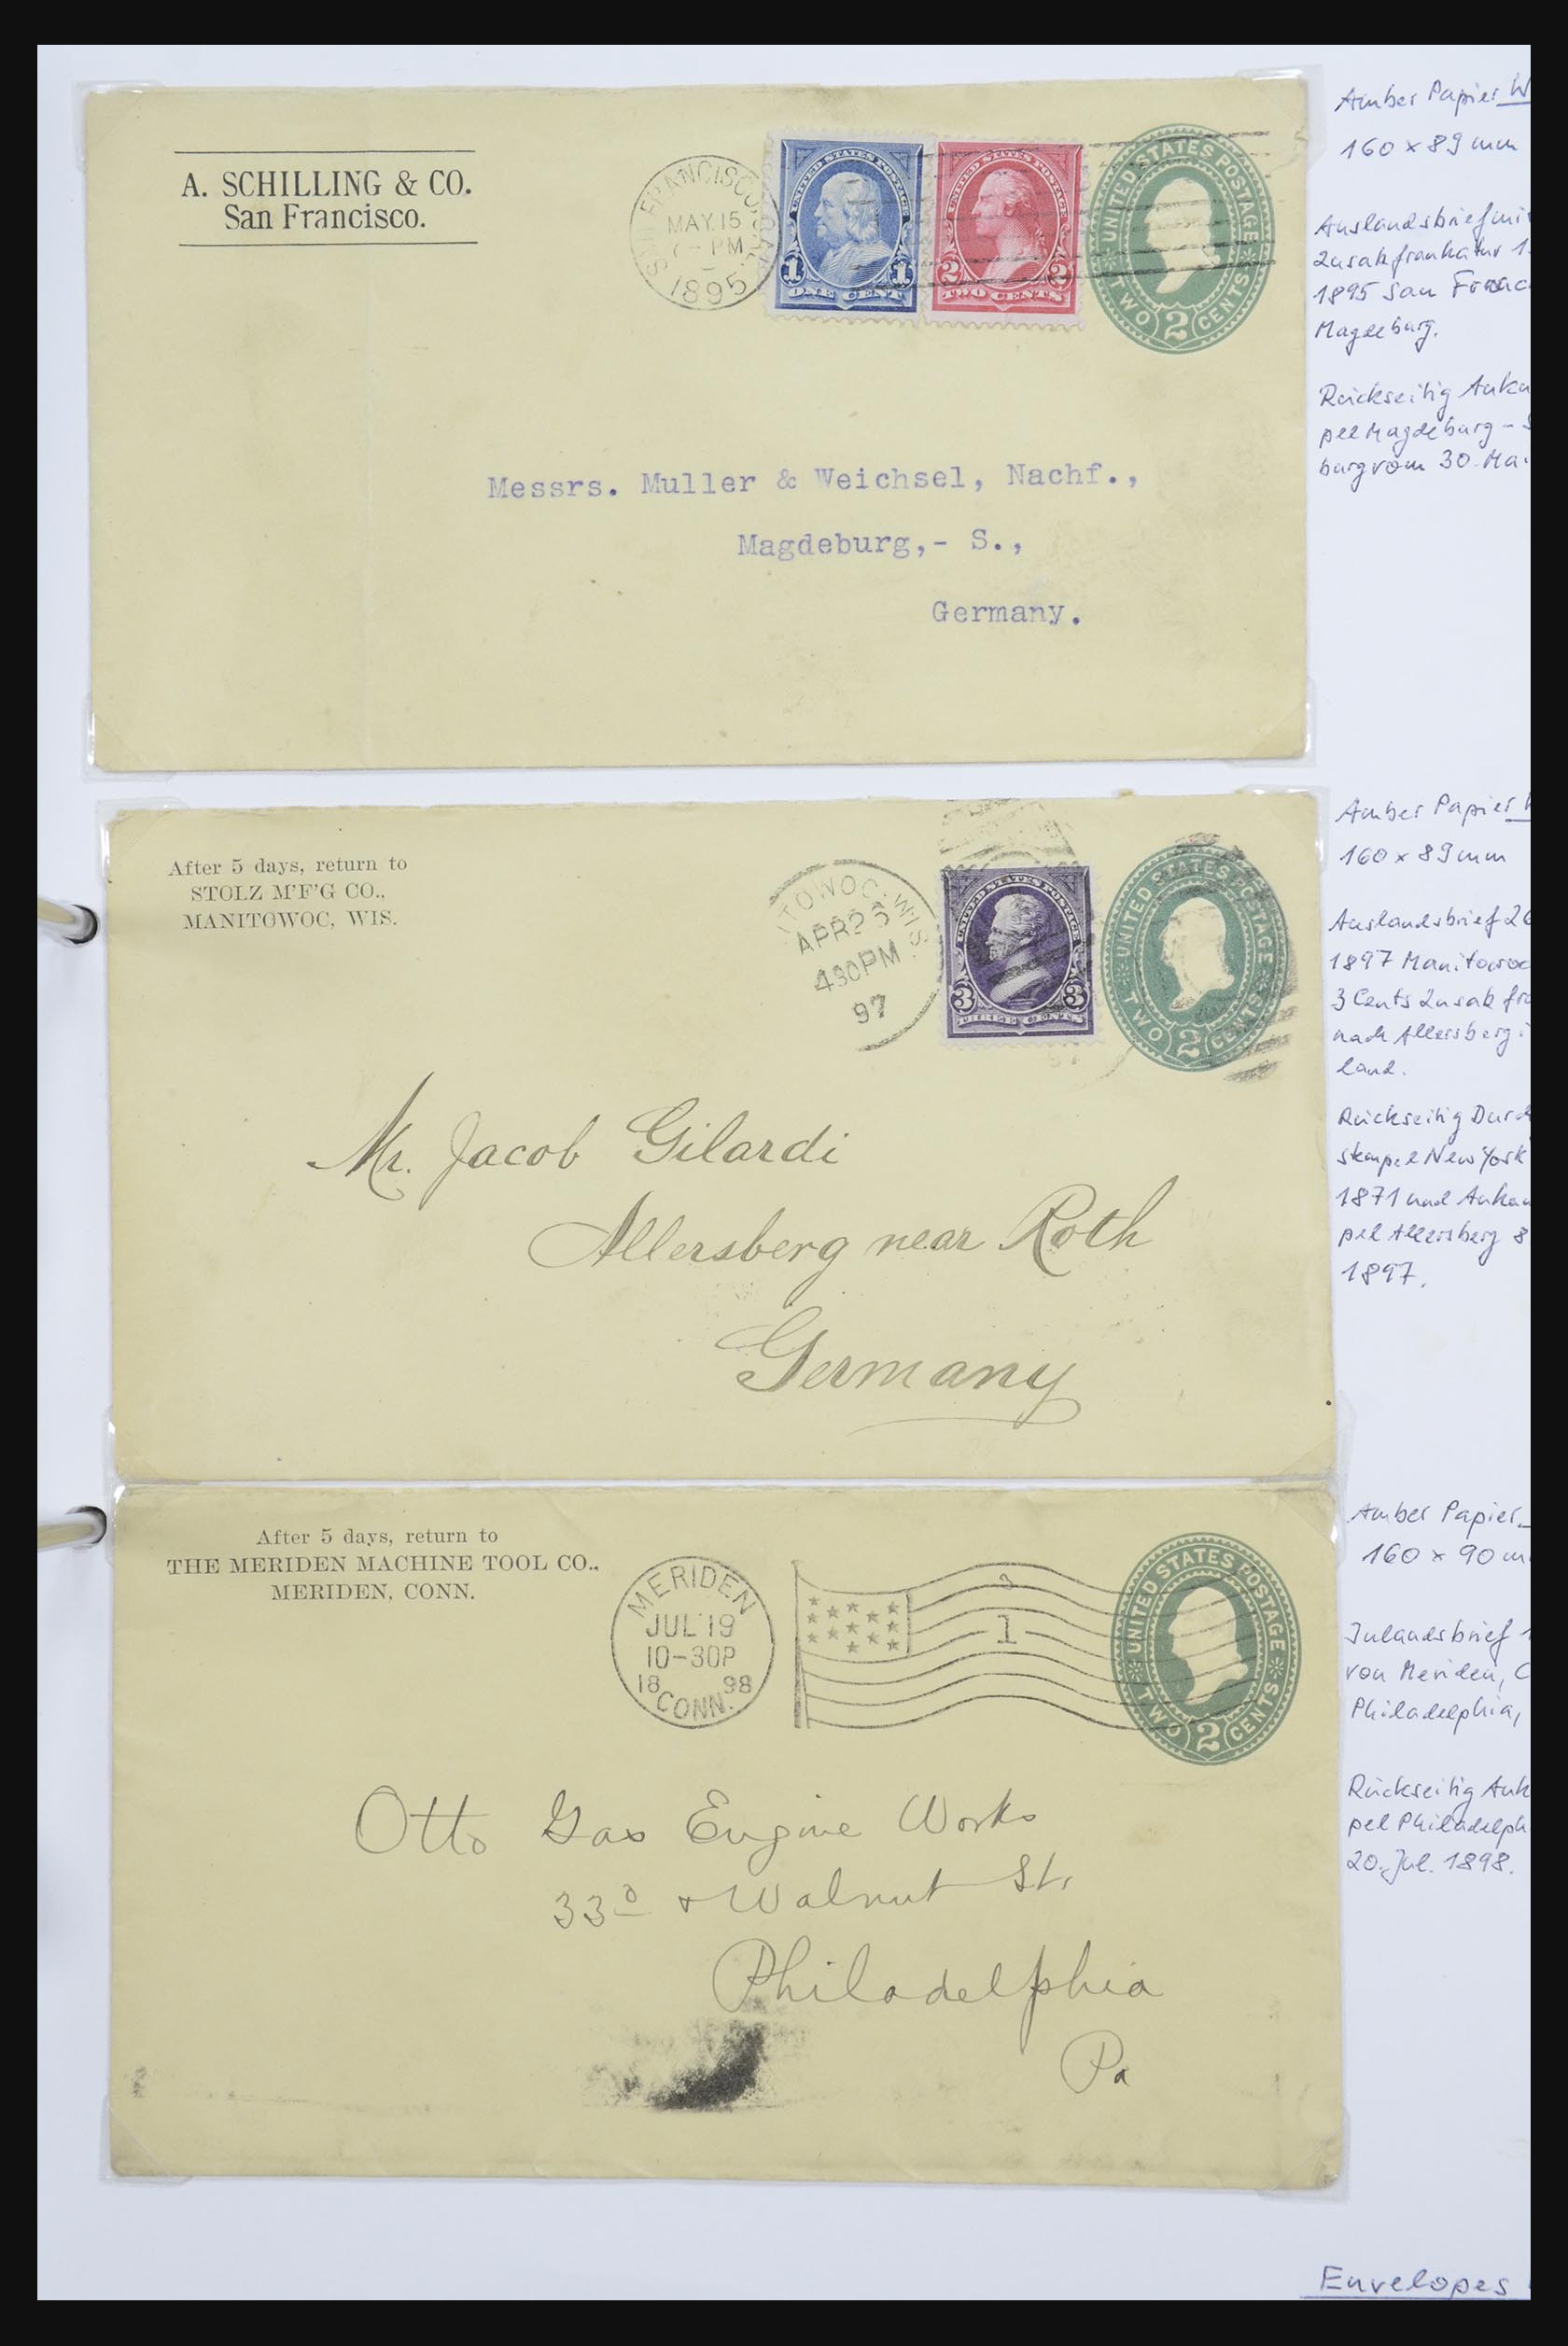 A. SCHILLING & CO.
San Francisco.
SAN FRANCISCO, CAL.
MAY 15
PM
1895
UNITED STATES POSTAGE
1 1
ONE CENT
UNITED STATES POSTAGE
2 2
TWO CENTS
UNITED STATES POSTAGE
TWO 2 CENTS
Messrs. Muller & Weichsel, Nachf.,
Magdeburg,- S.,
Germany.
Amber Papier
160 x 89 mm
Auslandsbrief
Zusatzfrankatur
1895 San
Magdeburg.
Rückseitig
pel Magdeburg -
burg vom 30.
After 5 days, return to
STOLZ M'F'G CO.,
MANITOWOC, WIS.
TOWOC. WIS.
APR 23
430PM
97
UNITED STATES POSTAGE
3 3
THREE CENTS
UNITED STATES POSTAGE
TWO 2 CENTS
Mr. Jacob Gilardi
Allersberg near Roth
Germany
Amber Papier
160 x 89 mm
Auslandsbrief
1897
3 Cents Zusatz
nach Allersberg
land.
Rückseitig
stempel New York
1871 und
pel Allersberg 8
1897.
After 5 days, return to
THE MERIDEN MACHINE TOOL CO.,
MERIDEN, CONN.
MERIDEN
JUL 19
10-30P
18 98
CONN.
1
UNITED STATES POSTAGE
TWO 2 CENTS
Otto Gas Engine Works
33d & Walnut St.
Philadelphia
Pa
Amber Papier
160 x 90
Inlandsbrief
von Meriden,
Philadelphia,
Rückseitig
pel
20. Jul. 1898.
Envelopes